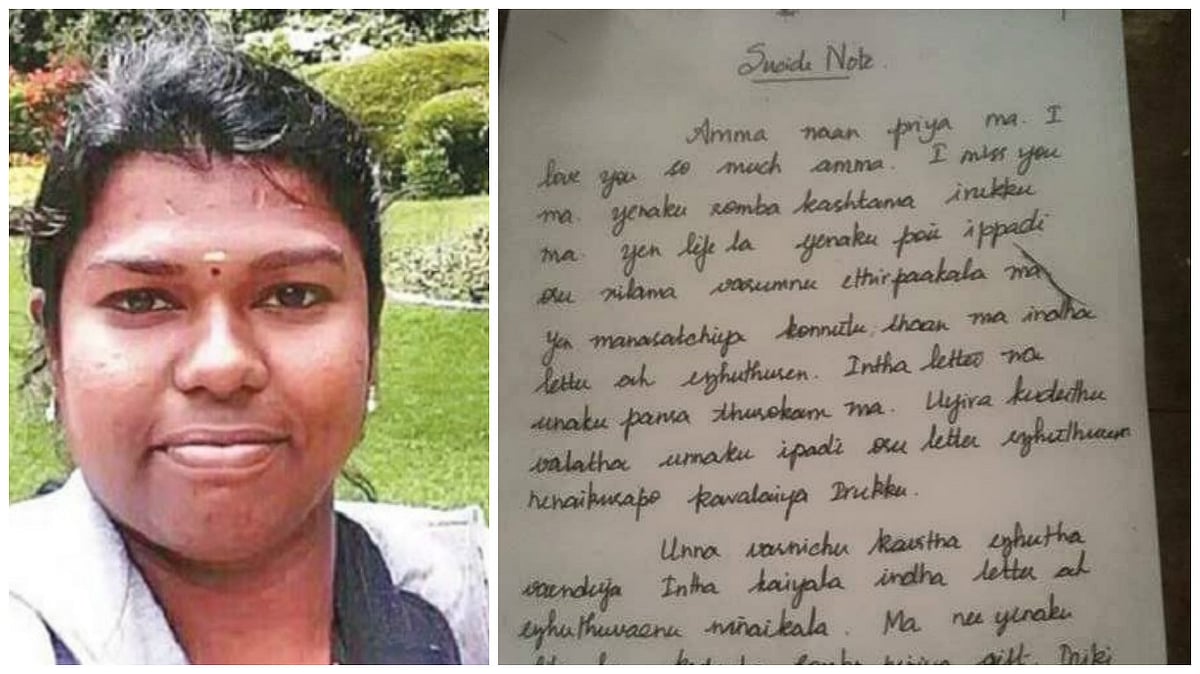 Suicide Note.
Amma naan priya ma. I
love you so much amma. I miss you
ma. yenaku romba kashtama irukku
ma. yen life la yenaku poii ippadi
oru nilama varumnu ethirpaakala ma
yen manasatchiya konnutu thaan ma indha
letter ah ezhuthuren. Intha letter na
unaku panra throkam ma. Uyira kuduthu
valatha unaku ipadi oru letter ezhuthurom
nenaikurapo kavalaiya Irukku.
Unna varnichu kavitha ezhutha
vaendiya Intha kaiyala indha letter ah
ezhuthuvaenu ninaikala. Ma nee yenaku
gift.